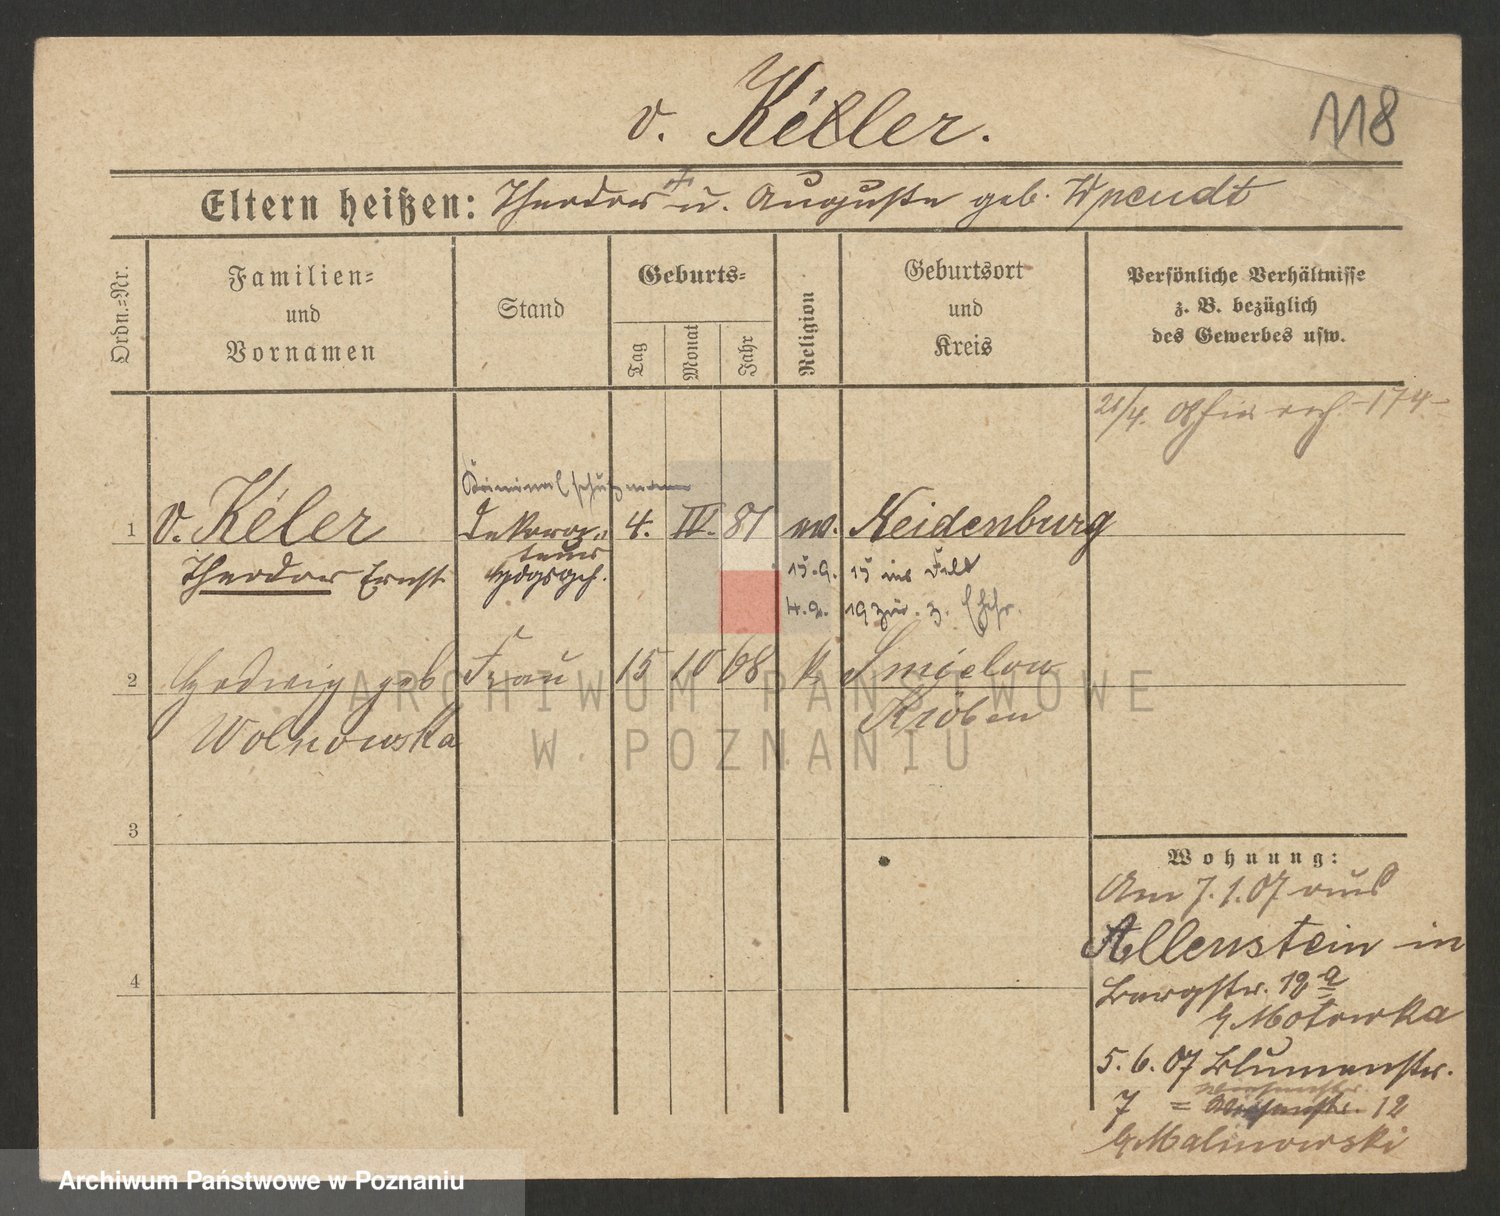 v. Kéler.
118
Eltern heißen: Theodor + u. Auguste geb.
Ordn.=Nr.
Familien=
und
Vornamen
Stand
Geburts=
Tag
Monat
Jahr
Religion
Geburtsort
und
Kreis
Persönliche Verhältnisse
z. B. bezüglich
des Gewerbes usw.
21/4. 174
Kriminalschutzmann
1 v. Kéler Dekora= 4. IV. 81 ev. Neidenburg
teur
Theodor Ernst
15.9. 15 ins Feld
4.2. 19 zur.
2 Hedwig geb Frau 15 10 68 k Smielow
Wolnowska Kröben
3
4
Wohnung:
Am 7.1.07 aus
Allenstein in
Bergstr. 12a
Motowka
5.6.07 Blumenstr.
7 = 12
Malinowski
ARCHIWUM PAŃSTWOWE
W POZNANIU
Archiwum Państwowe w Poznaniu